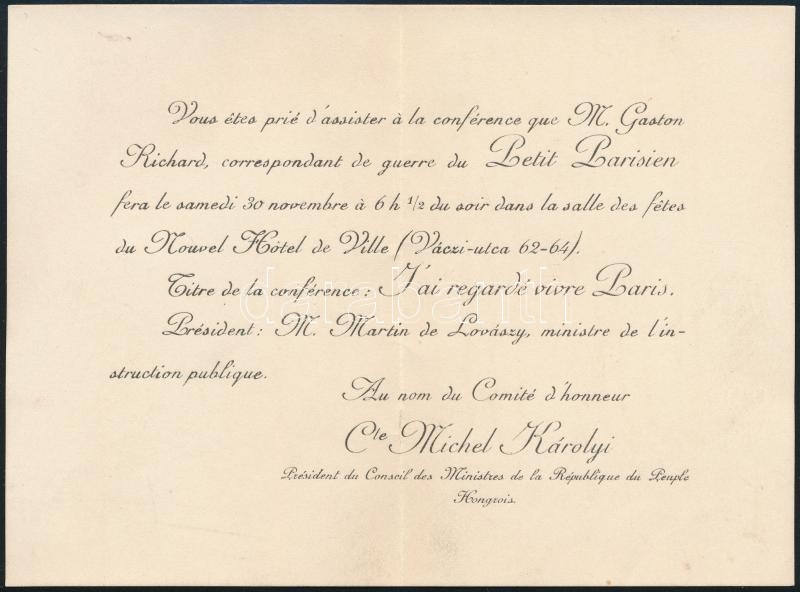 Vous êtes prié d'assister à la conférence que M. Gaston
Richard, correspondant de guerre du Petit Parisien
fera le samedi 30 novembre à 6 h 1/2 du soir dans la salle des fêtes
du Nouvel Hôtel de Ville (Váczi-utca 62-64).
Titre de la conférence: J'ai regardé vivre Paris.
Président: M. Martin de Lovászy, ministre de l'in-
struction publique.
Au nom du Comité d'honneur
Cte Michel Károlyi
Président du Conseil des Ministres de la République du Peuple
Hongrois.
darabanth